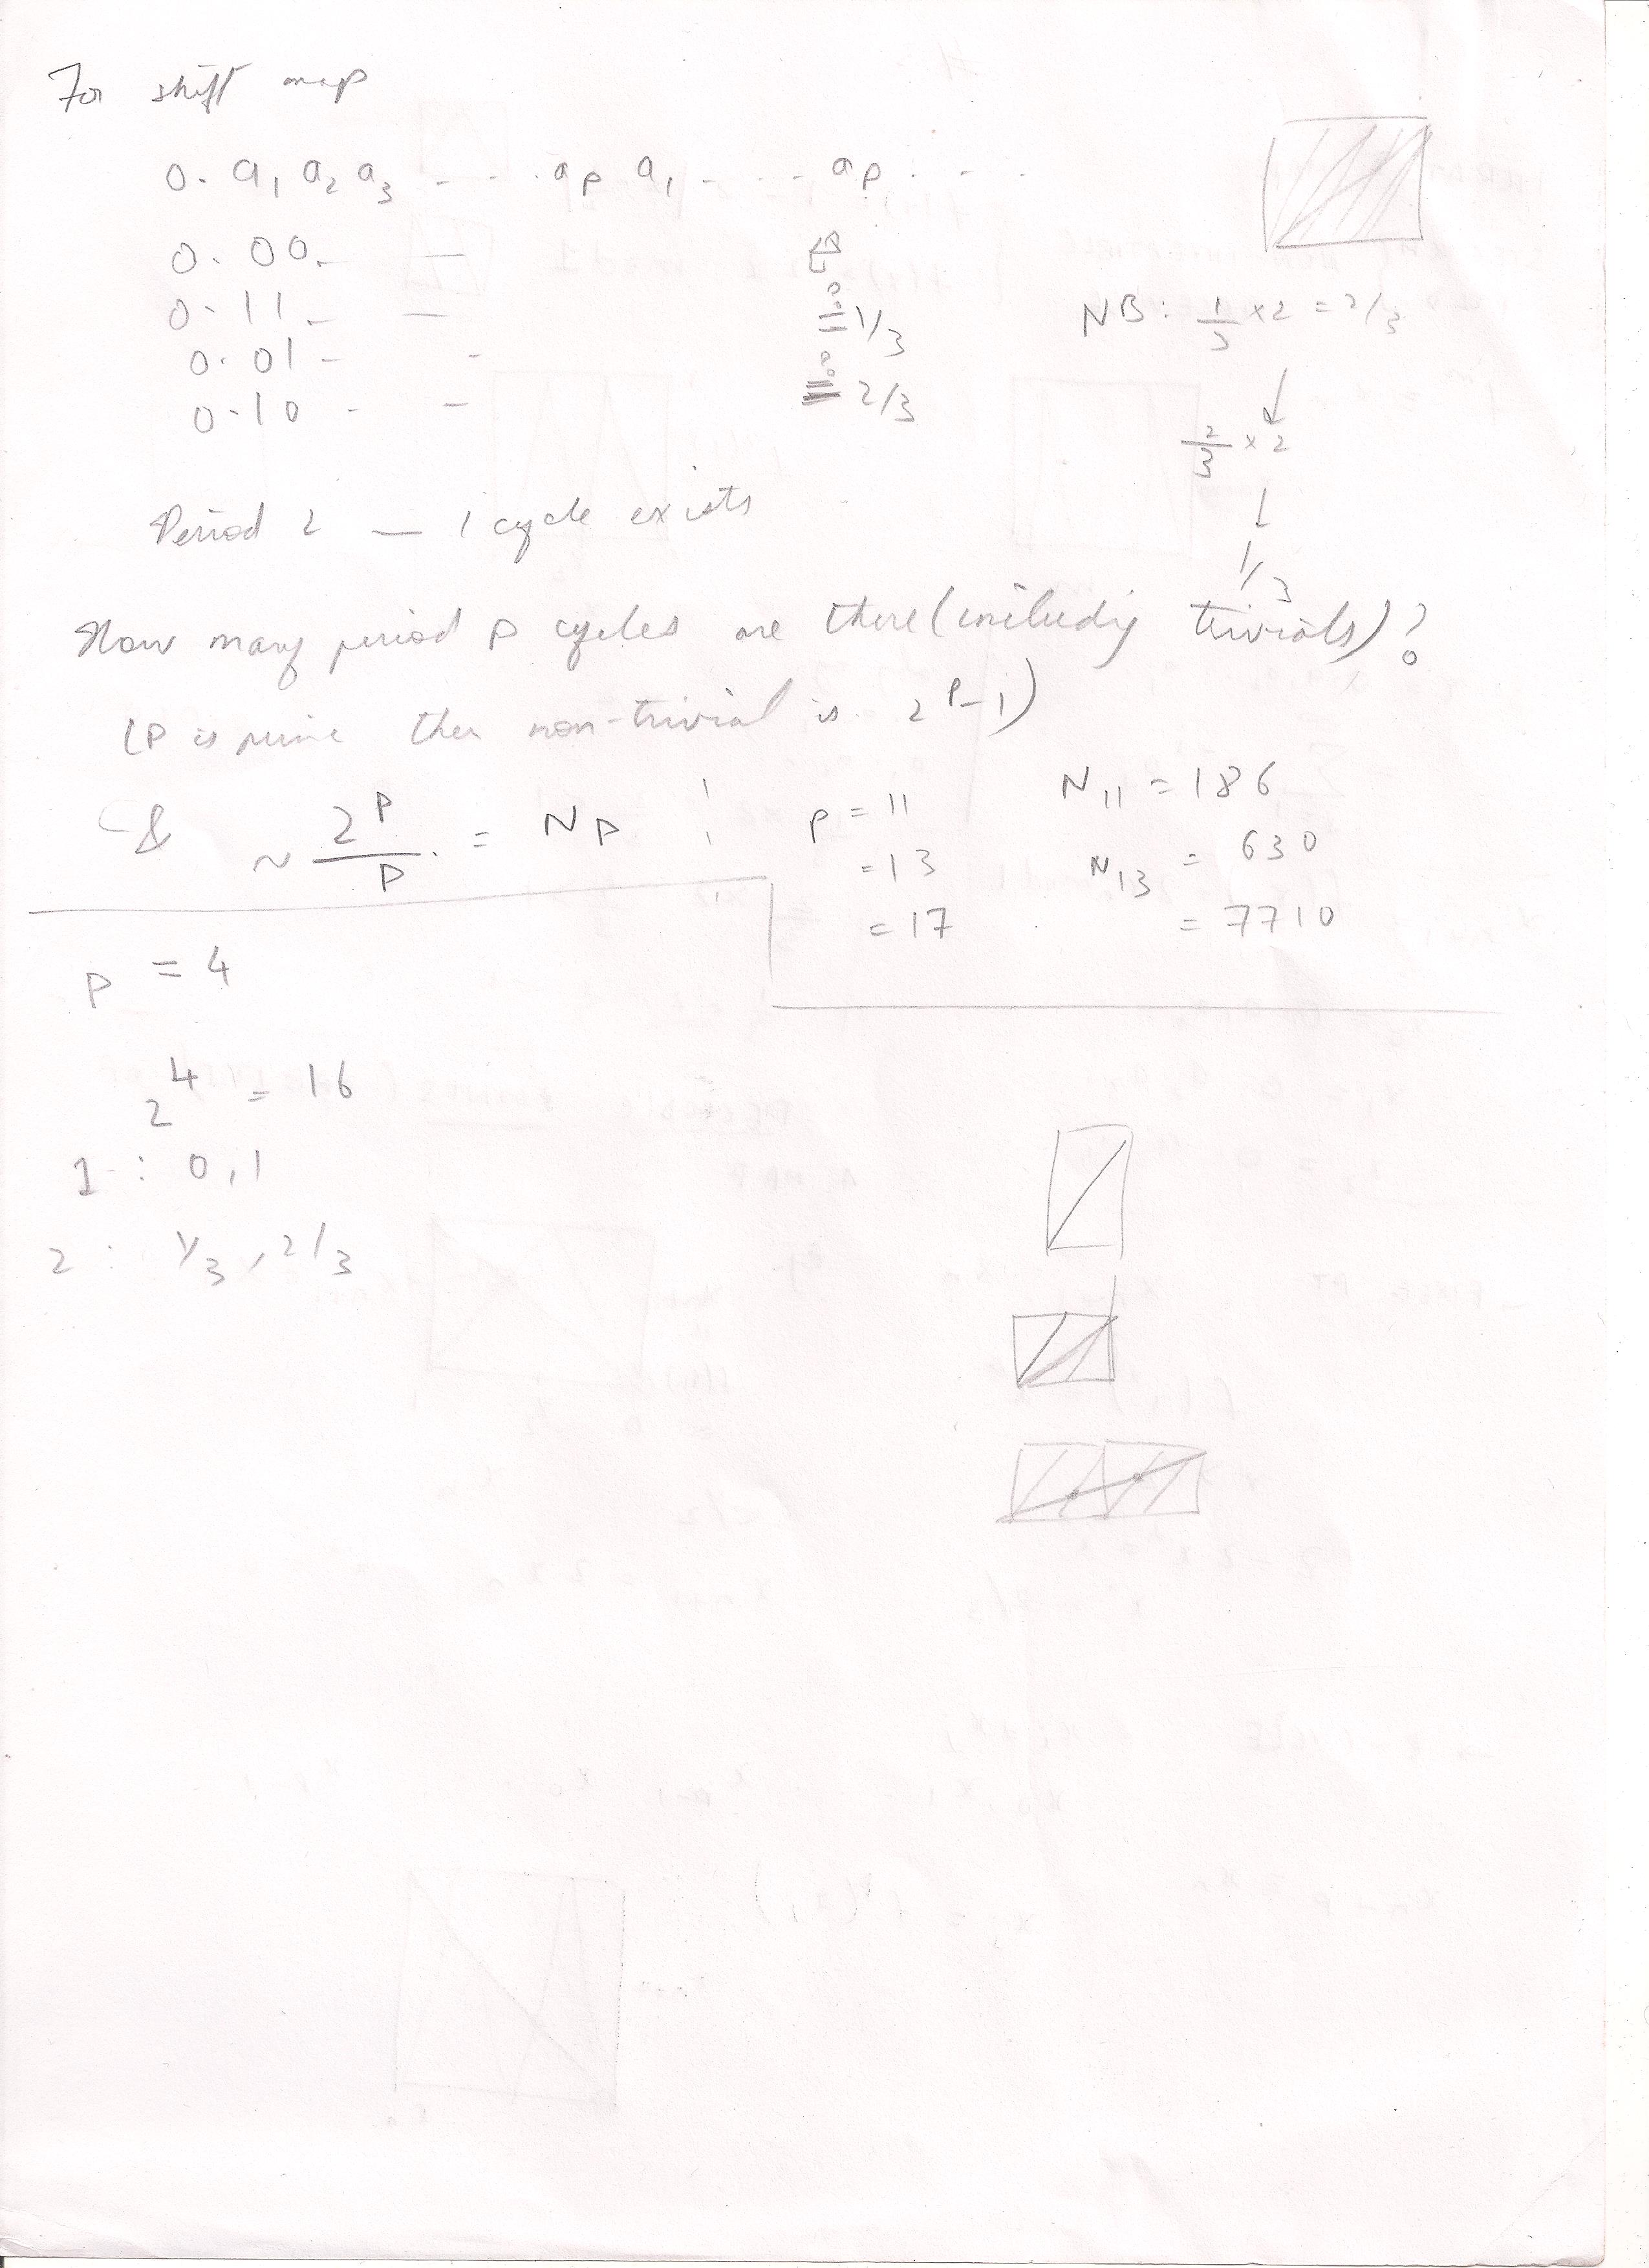 For shift map
0. a₁ a₂ a₃ - - . aₚ a₁ - . - . aₚ . - .
0. 00. - —
0. 11. - — = 1/3
0. 01 - -
0. 10 - - = 2/3
NB: 1/3 × 2 = 2/3
↓
2/3 × 2
↓
1/3
Period 2 — 1 cycle exists
How many period p cycles are there (including trivials)?
(P is prime then non-trivial is 2^P-1)
& ~ 2^P/P = N_P
p = 11 N₁₁ = 186
= 13 N₁₃ = 630
= 17 = 7710
p = 4
2^4 = 16
1 : 0, 1
2 : 1/3, 2/3